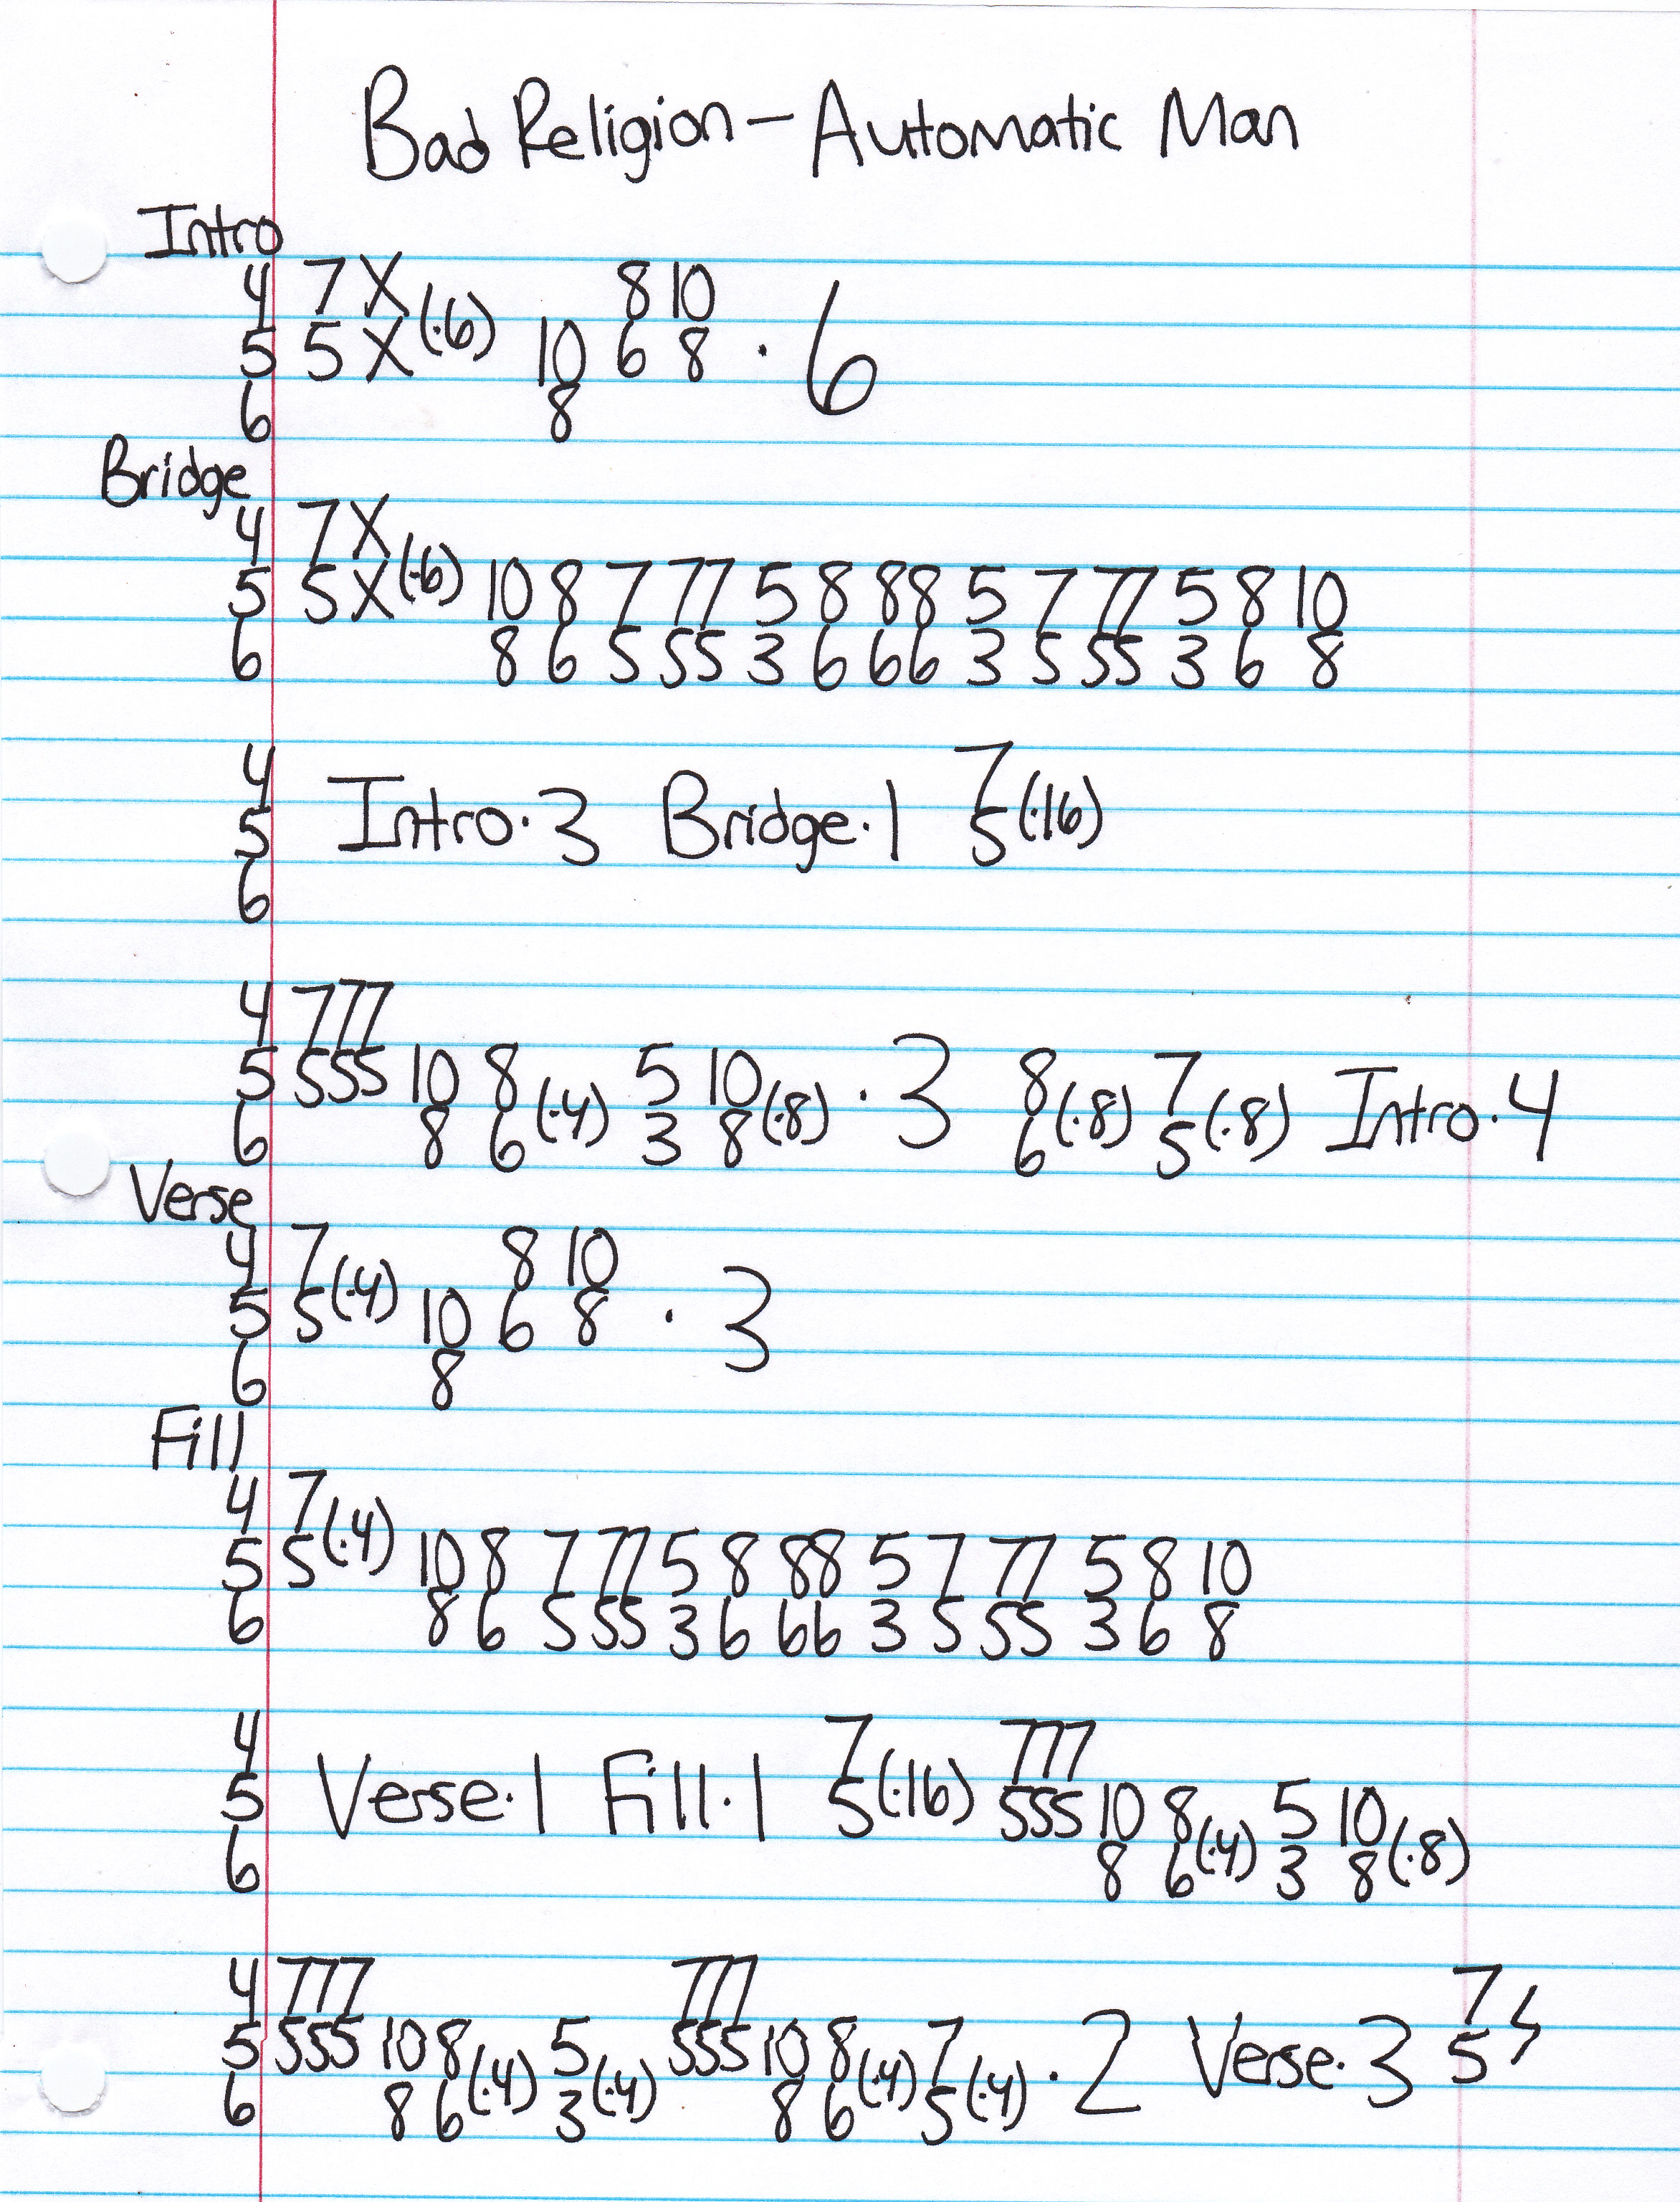 Bad Religion - Automatic Man
Intro
4 7 X 8 10
5 5 X (·6) 10 6 8 · 6
6 8
Bridge
4 7 X
5 5 X (·6) 10 8 7 77 5 8 88 5 7 77 5 8 10
6 8 6 5 55 3 6 66 3 5 55 3 6 8
4 7
5 Intro·3 Bridge·1 5 (·16)
6
4 777
5 555 10 8 (·4) 5 10 (·8) · 3 8 (·8) 7 (·8) Intro·4
6 8 6 3 8 6 5
Verse
4 7 (·4) 8 10
5 5 10 6 8 · 3
6 8
Fill
4 7 (·4)
5 5 10 8 7 77 5 8 88 5 7 77 5 8 10
6 8 6 5 55 3 6 66 3 5 55 3 6 8
4 7 777
5 Verse·1 Fill·1 5 (·16) 555 10 8 5 10
6 8 6 (·4) 3 8 (·8)
4 777 777 7
5 555 10 8 5 555 10 8 7 · 2 Verse·3 5
6 8 6 (·4) 3 (·4) 8 6 (·4) 5 (·4)